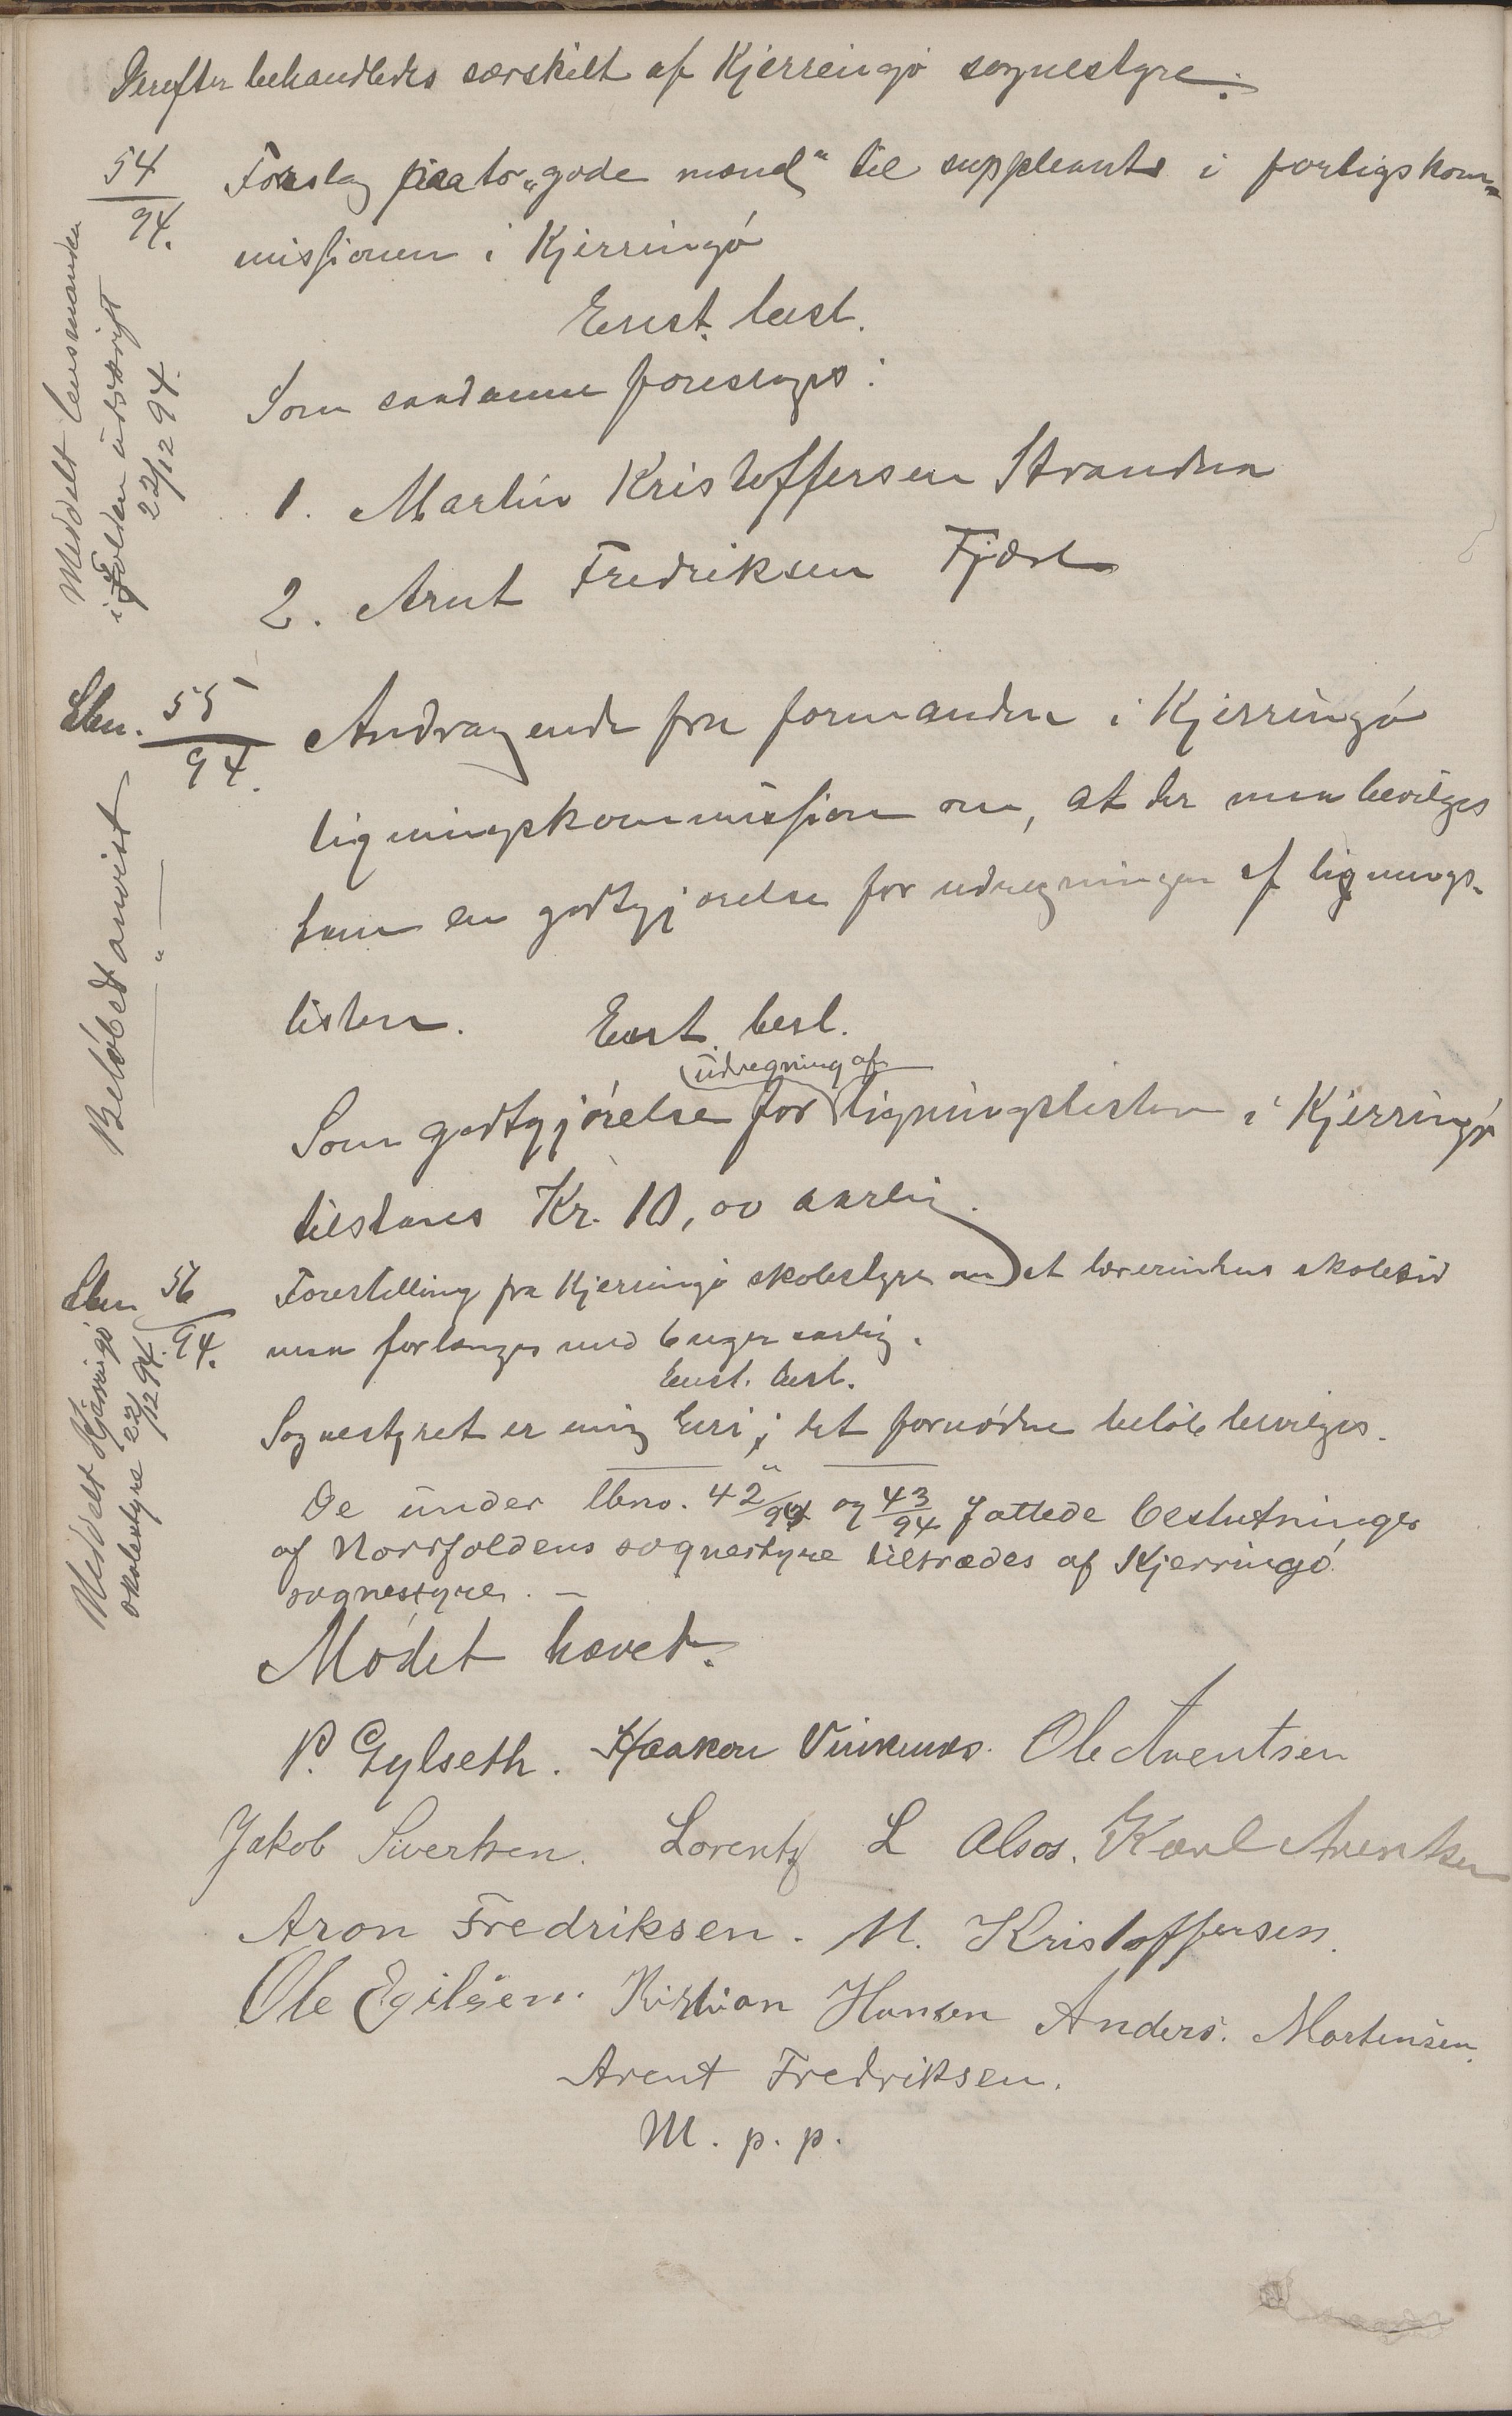 Derefter behandledes særskilt af Kjerringø sognestyre:
54/94.
Forslag paa to „gode mænd" til suppleants i forligskom=
missionen i Kjerringø
Enst. besl.
Som saadanne foreslages:
1. Martin Kristoffersen Stranden
2. Arnt Fredriksen Fjære
Meddelt lensmanden
i Folden udskrift
22/12 94.
Lbn. 55/94.
Andragende fra formanden i Kjerringø
ligningskommission om, at der maa bevilges
ham en godtgjørelse for udregningen af lignings-
listen.
Enst. besl.
udregning af
Som godtgjørelse for ligningslisten i Kjerringø
tilstaaes Kr. 10,00 aarlig.
Beløbet anvist
Lbn 56/94.
Forestilling fra Kjerringø skolestyre om at lærerindens skoletid
maa forlænges med 6 uger aarlig.
Enst. besl.
Sognestyret er enig heri; det fornødne beløb bevilges.
Meddelt Kjerringø
skolestyre 22/12 94.
De under lbno. 42/94 og 43/94 fattede beslutninger
af Nordfoldens sognestyre tiltrædes af Kjerringø
sognestyre. —
Mødet hævet.
P. Gylseth. Haakon Ole Arentsen
Jakob Sivertsen. Lorentz L Alsos. Karl Arentsen
Aron Fredriksen. M. Kristoffersen.
Ole Egilsen. Kristian Hansen Anders. Mortensen.
Arent Fredriksen.
M. p. p.